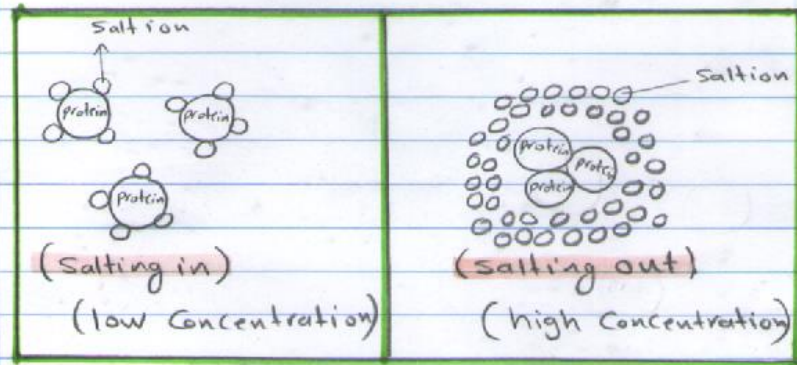 Saltion
protein
protein
protein
(Salting in)
(low Concentration)
Saltion
protein
protein
protein
(Salting out)
(high Concentration)